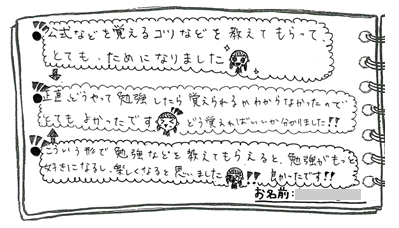 公式などを覚えるコツなどを教えてもらって
とても、ためになりました
正直どうやって勉強したら覚えられるかわからなかったので
とてもよかったです どう覚えればいいか分かりました!!
こういう形で勉強などを教えてもらえると、勉強がもっと
好きになるし、楽しくなると思いました!! 良かったです!!
お名前: